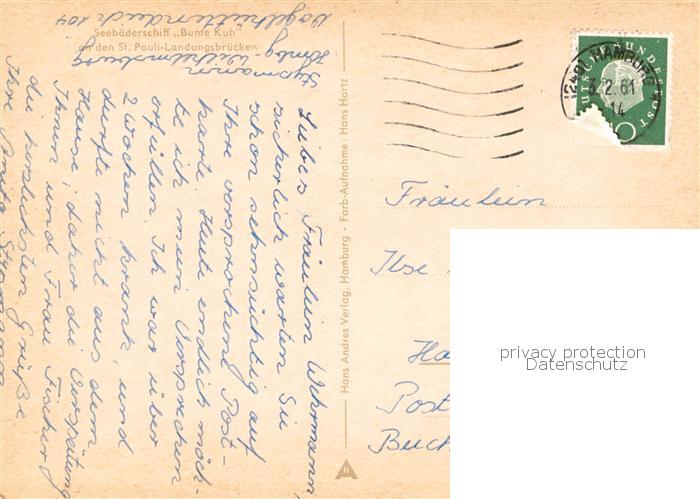 Seebäderschiff „Bunte Kuh"
an den St. Pauli-Landungsbrücken
Hans Andres Verlag, Hamburg - Farb-Aufnahme: Hans Hartz
Hamburg-Wilhelmsburg
104
Liebes Fräulein Wehrmann,
sicherlich warten Sie
schon sehnsüchtig auf
Ihre versprochene Post-
karte. Heute endlich möch-
te ich mein Versprechen
erfüllen. Ich war über
2 Wochen krank, und
durfte nicht aus dem
Hause, daher die Verspätung
Ihnen und Frau Fischer
die herzlichsten Grüße
Ihre
(24a) HAMBURG
2.61
14
DEUTSCHE BUNDESPOST
Fräulein
Ilse
Ha
Post
Buch
privacy protection
Datenschutz